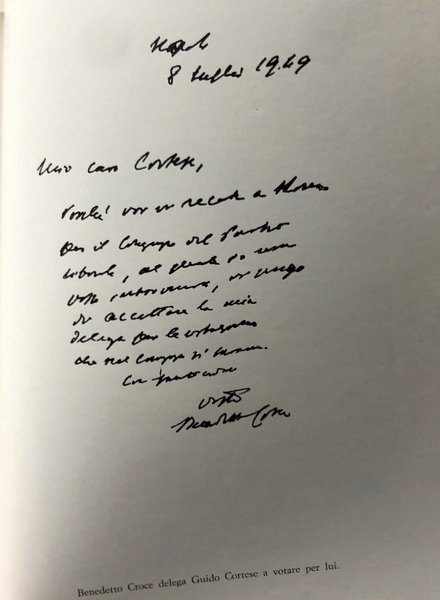 Napoli
8 luglio 1949
Mio caro Cortese,
Poiché voi vi recate a
per il Congresso del Partito
liberale, al quale io non
vi prego
di accettare la mia
delega per le votazioni
che nel congresso si faranno.
Con
Vostro
Benedetto Croce
Benedetto Croce delega Guido Cortese a votare per lui.